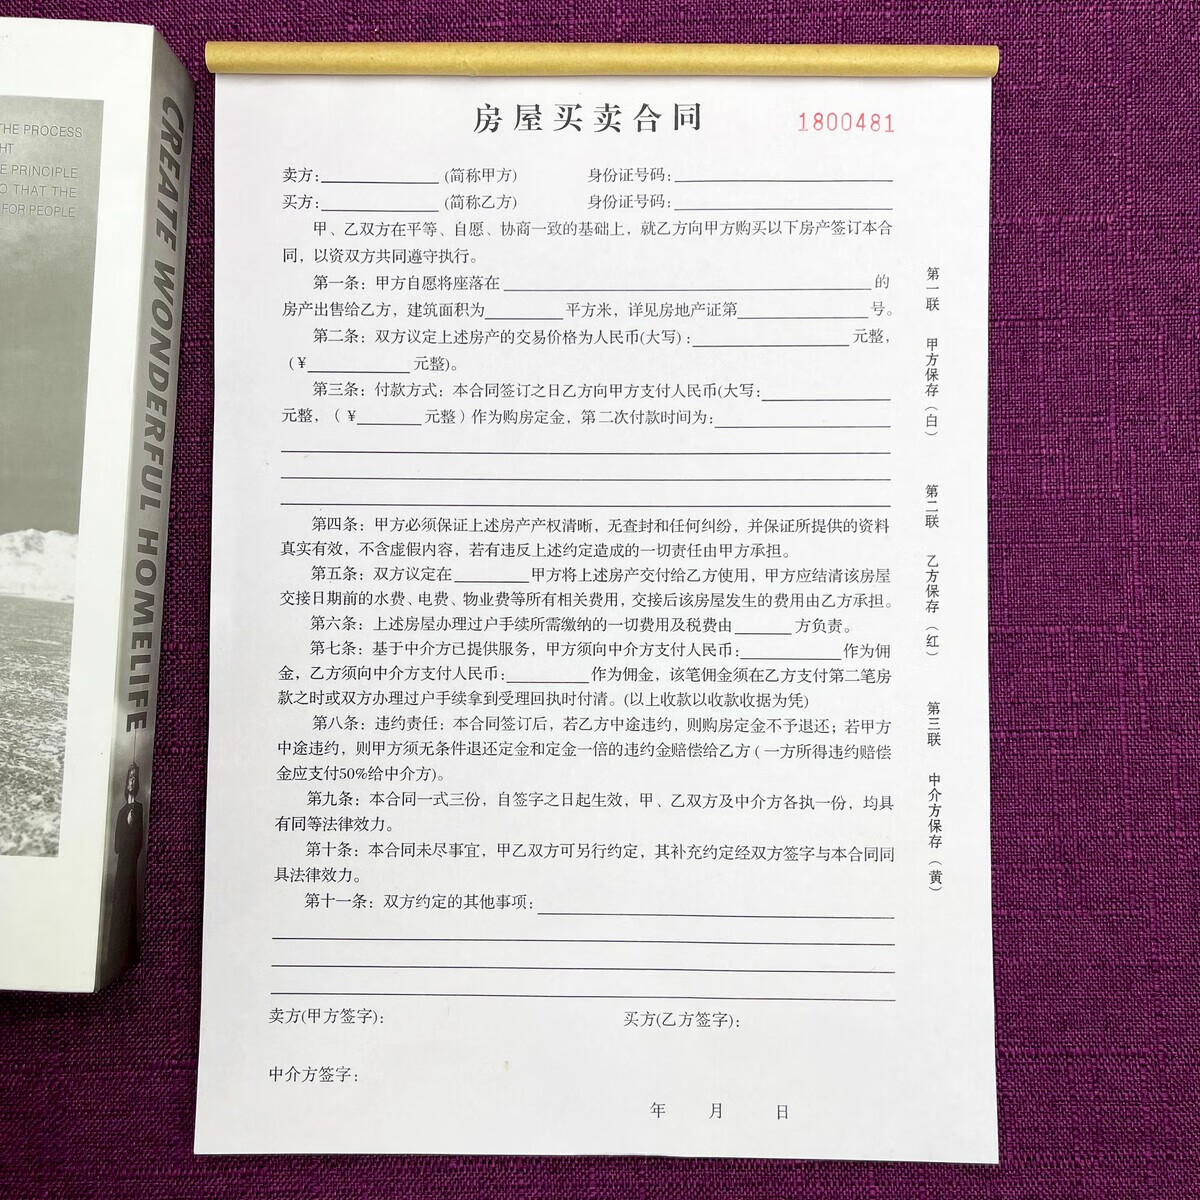 THE PROCESS
HT
E PRINCIPLE
O THAT THE
FOR PEOPLE
CREATE WONDERFUL HOMELIFE
房屋买卖合同
1800481
卖方:__________ (简称甲方) 身份证号码:__________
买方:__________ (简称乙方) 身份证号码:__________
甲、乙双方在平等、自愿、协商一致的基础上，就乙方向甲方购买以下房产签订本合
同，以资双方共同遵守执行。
第一条：甲方自愿将座落在__________的
房产出售给乙方，建筑面积为__________平方米，详见房地产证第__________号。
第二条：双方议定上述房产的交易价格为人民币(大写)：__________元整，
(￥__________元整)。
第三条：付款方式：本合同签订之日乙方向甲方支付人民币(大写:__________
元整，（￥__________元整）作为购房定金，第二次付款时间为:__________
第四条：甲方必须保证上述房产产权清晰，无查封和任何纠纷，并保证所提供的资料
真实有效，不含虚假内容，若有违反上述约定造成的一切责任由甲方承担。
第五条：双方议定在__________甲方将上述房产交付给乙方使用，甲方应结清该房屋
交接日期前的水费、电费、物业费等所有相关费用，交接后该房屋发生的费用由乙方承担。
第六条：上述房屋办理过户手续所需缴纳的一切费用及税费由__________方负责。
第七条：基于中介方已提供服务，甲方须向中介方支付人民币:__________作为佣
金，乙方须向中介方支付人民币:__________作为佣金，该笔佣金须在乙方支付第二笔房
款之时或双方办理过户手续拿到受理回执时付清。(以上收款以收款收据为凭)
第八条：违约责任：本合同签订后，若乙方中途违约，则购房定金不予退还；若甲方
中途违约，则甲方须无条件退还定金和定金一倍的违约金赔偿给乙方（一方所得违约赔偿
金应支付50%给中介方)。
第九条：本合同一式三份，自签字之日起生效，甲、乙双方及中介方各执一份，均具
有同等法律效力。
第十条：本合同未尽事宜，甲乙双方可另行约定，其补充约定经双方签字与本合同同
具法律效力。
第十一条：双方约定的其他事项:__________
卖方(甲方签字)： 买方(乙方签字)：
中介方签字：
年 月 日
第一联 甲方保存（白）
第二联 乙方保存（红）
第三联 中介方保存（黄）